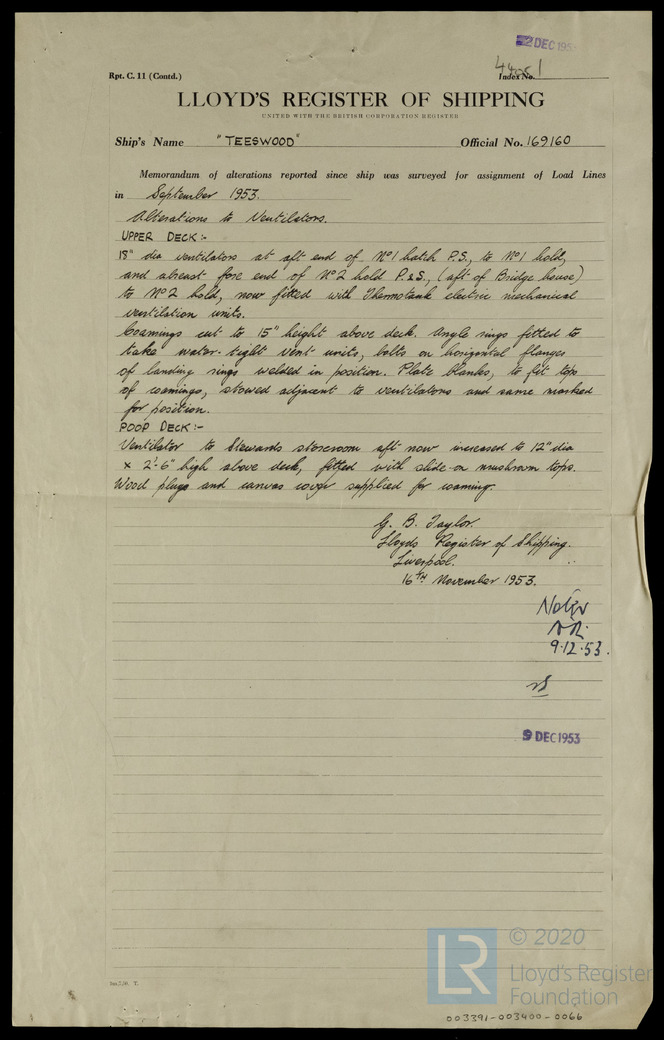 2 DEC 195
Rpt. C. 11 (Contd.)
Index No.
LLOYD'S REGISTER OF SHIPPING
UNITED WITH THE BRITISH CORPORATION REGISTER
Ship's Name "TEESWOOD" Official No. 169160
Memorandum of alterations reported since ship was surveyed for assignment of Load Lines
in September 1953.
Alterations to Ventilators.
UPPER DECK:-
18" dia ventilators at aft end of No 1 hatch P.S., to No 1 hold,
and abreast fore end of No 2 hold P.&S., (aft of Bridge house)
to No 2 hold, now fitted with Thermotank electric mechanical
ventilation units.
Coamings cut to 15" height above deck. Angle rings fitted to
take water-tight vent units, bolts on horizontal flanges
of landing rings welded in position. Plate blanks, to fit tops
of coamings, stowed adjacent to ventilators and same marked
for position.
POOP DECK:-
Ventilator to Stewards storeroom aft now increased to 12" dia
x 2'-6" high above deck, fitted with slide on mushroom tops.
Wood plugs and canvas cover supplied for coaming.
G. B. Taylor.
Lloyds Register of Shipping.
Liverpool.
16TH November 1953.
Noted
9.12.53.
9 DEC 1953
LR
© 2020
Lloyd's Register
Foundation
003391-003400-0066